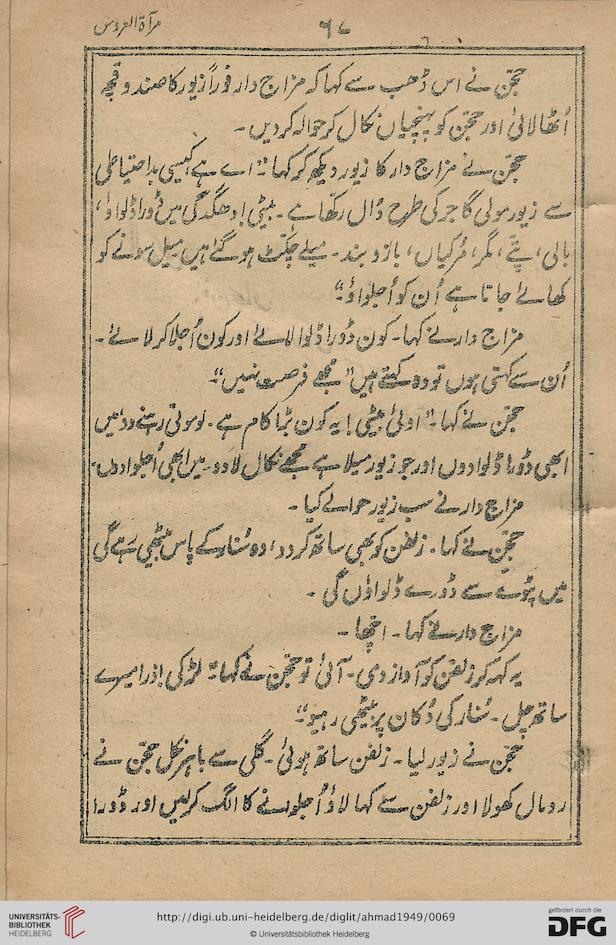 مرآۃ العروس
۶۷
حجّن نے اس ڈھب سے کہا کہ مزاج دار فوراً زیور کا صندوقچہ
اُٹھا لائی اور حجّن کو پہنچیاں نکال کر حوالہ کر دیں۔
حجّن نے مزاج دار کا زیور دیکھ کر کہا "اے ہے، کیسی بداحتیاطی
سے زیور مولی گاجر کی طرح ڈال رکھا ہے۔ بیٹی! دھگدگی میں ڈورا ڈلواؤ،
بالی، پتّے، مگر، مُرکیاں، بازوبند۔ میلے چکٹ ہو گئے ہیں میل سونے کو
کھائے جاتا ہے اُن کو اُجلواؤ"۔
مزاج دار نے کہا۔ کون ڈورا ڈلوا لائے اور کون اُجلا کر لائے۔
اُن سے کہتی ہوں تو وہ کہتے ہیں "مجھے فرصت نہیں"۔
حجّن نے کہا۔ "اوئی بیٹی! یہ کون بڑا کام ہے۔ لو موتی رہنے دو، میں
ابھی ڈورا ڈلوا دوں اور جو زیور میلا ہے مجھے نکال لا دو۔ میں ابھی اُجلوا دوں"
مزاج دار نے سب زیور حوالے کیا۔
حجّن نے کہا۔ زلفن کو بھی ساتھ کر دو، وہ سُنار کے پاس بیٹھی رہے گی
میں پٹوے سے ڈورے ڈلواؤں گی۔
مزاج دار نے کہا۔ اچھا۔
یہ کہہ کر زلفن کو آواز دی۔ آئی تو حجّن نے کہا "لڑکی! ذرا میرے
ساتھ چل۔ سُنار کی دُکان پر بیٹھی رہیو"۔
حجّن نے زیور لیا۔ زلفن ساتھ ہوئی۔ گلی سے باہر نکل حجّن نے
رومال کھولا اور زلفن سے کہا لاؤ اُجلوانے کا الگ کر لیں اور ڈورا
UNIVERSITÄTS-
BIBLIOTHEK
HEIDELBERG
http://digi.ub.uni-heidelberg.de/diglit/ahmad1949/0069
© Universitätsbibliothek Heidelberg
gefördert durch die
DFG